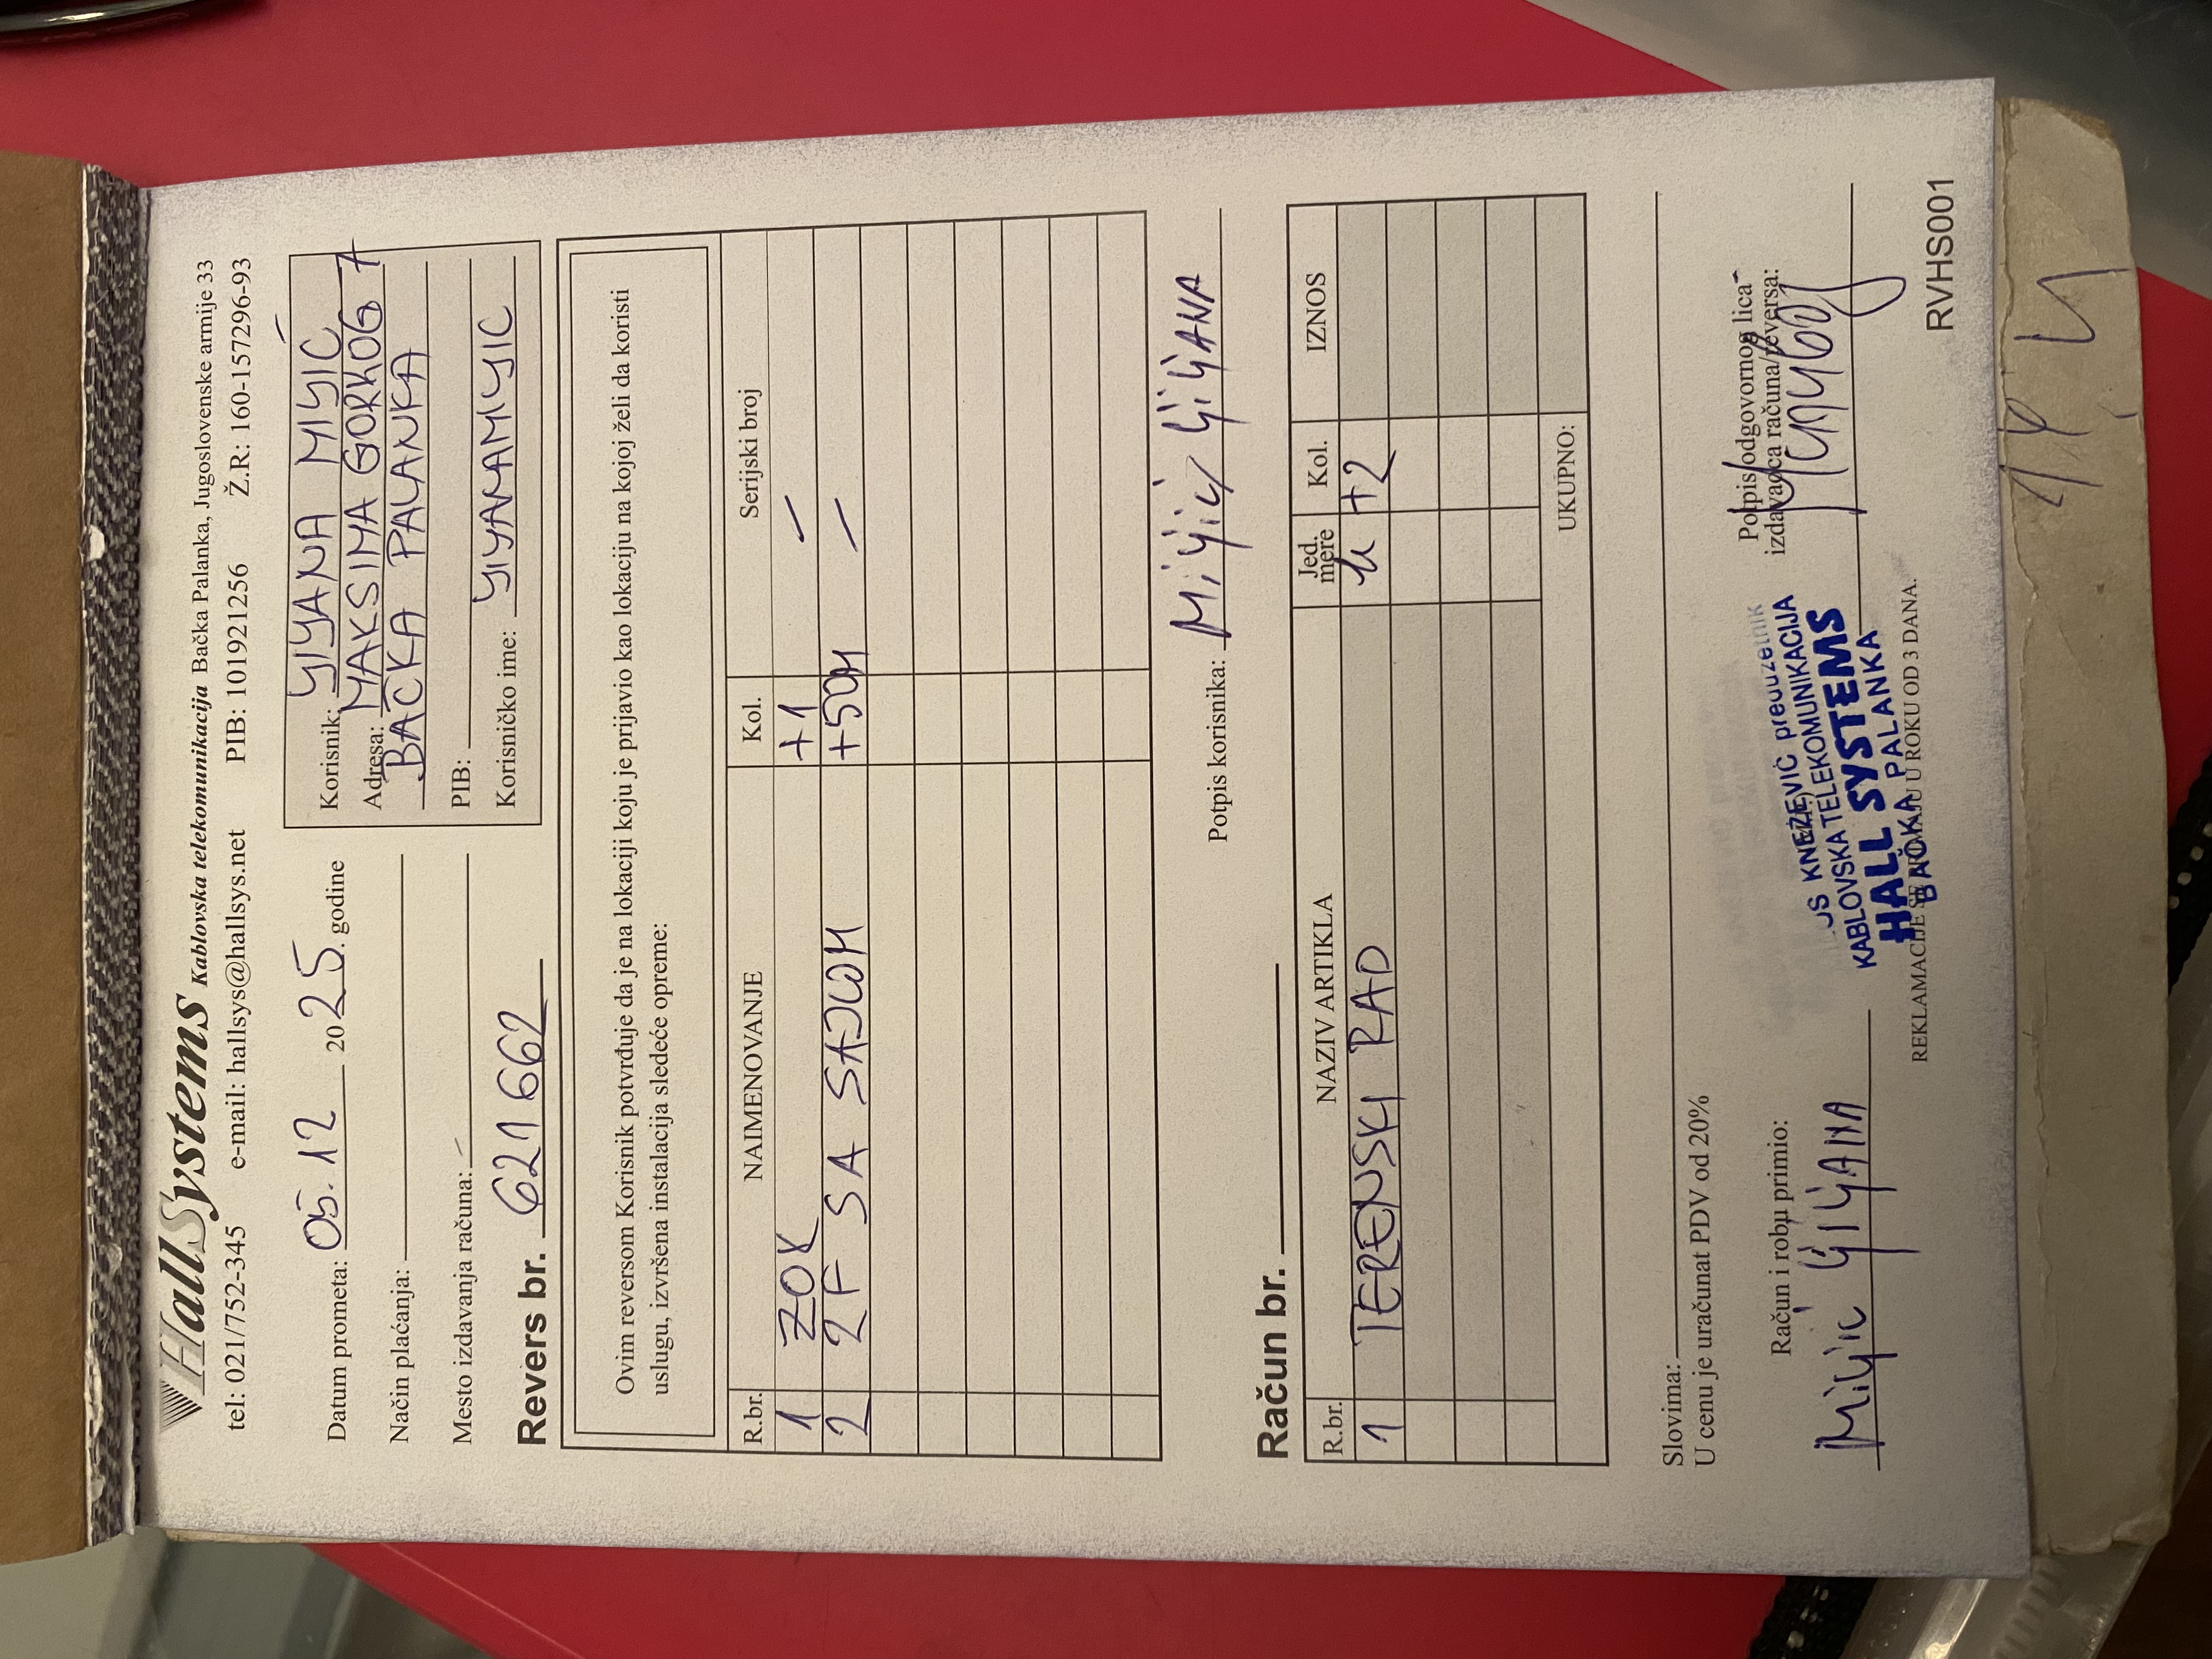 HallSystems Kablovska telekomunikacija Bačka Palanka, Jugoslovenske armije 33
tel: 021/752-345 e-mail: hallsys@hallsys.net PIB: 101921256 Ž.R: 160-157296-93
Datum prometa: 05.12 2025. godine
Način plaćanja:
Mesto izdavanja računa:
Revers br. 621662
Korisnik: LJILJANA MILJIĆ
Adresa: MAKSIMA GORKOG 7
BAČKA PALANKA
PIB:
Korisničko ime: LJILJANAMILJIC
Ovim reversom Korisnik potvrđuje da je na lokaciji koju je prijavio kao lokaciju na kojoj želi da koristi
uslugu, izvršena instalacija sledeće opreme:
R.br. NAIMENOVANJE Kol. Serijski broj
1 ZOK +1 –
2 2F SA SAJLOM +50M –
Potpis korisnika: Miljić Ljiljana
Račun br.
R.br. NAZIV ARTIKLA Jed. mere Kol. IZNOS
1 TERENSKI RAD h +2
UKUPNO:
Slovima:
U cenu je uračunat PDV od 20%
Račun i robu primio:
Miljić Ljiljana
Potpis odgovornog lica-
izdavaoca računa/reversa:
KNEŽEVIĆ preduzetnik
KABLOVSKA TELEKOMUNIKACIJA
HALL SYSTEMS
BAČKA PALANKA
REKLAMACIJE SE PRIMAJU U ROKU OD 3 DANA.
RVHS001